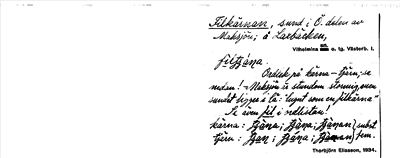 Filkärnan, sund i Ö. delen av
Maksjön; å Laxbäcken,
Vilhelmina sn. o. tg. Västerb. l.
filtjäna.
Ordlek på kärna – tjärn; se
nedan! – Maksjön är stundom stormig, men
sundet ligger i lä: lugnt som en filkärna"
Se även fil i ordlistan!
kärna: tjäna; tjäna; tjänan } subst.
tjärn: tjän; tjäna; tjänan } fem.
Thorbjörn Eliasson, 1934.